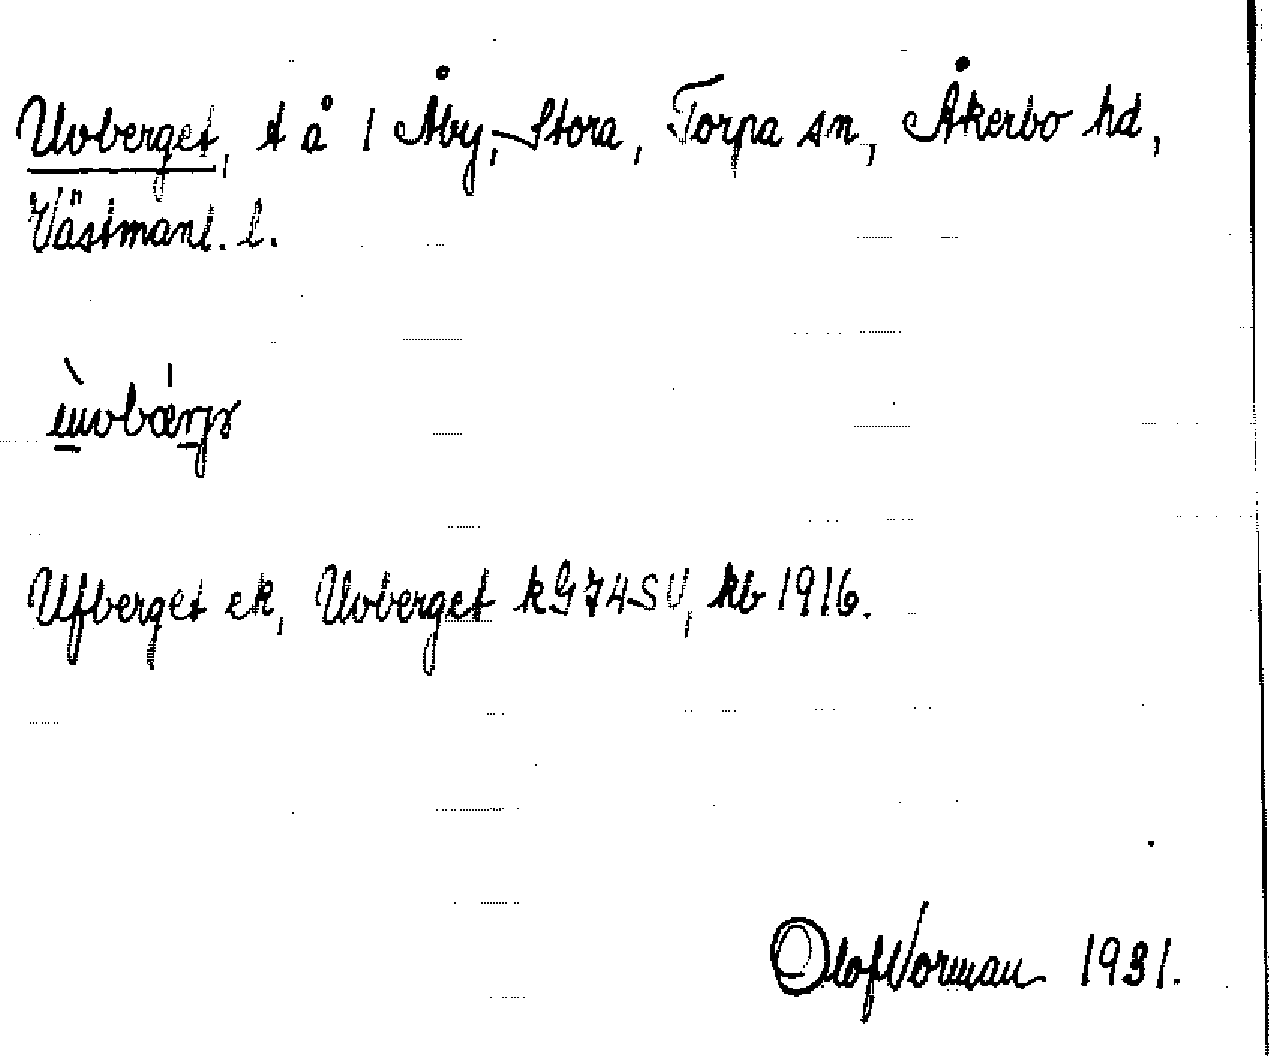 Uvberget, t å 1 Åby, Stora, Torpa sn, Åkerbo hd,
Västmanl. l.
Ufberget ek, Uvberget kG74SU, kb 1916.
Olof Norman 1931.